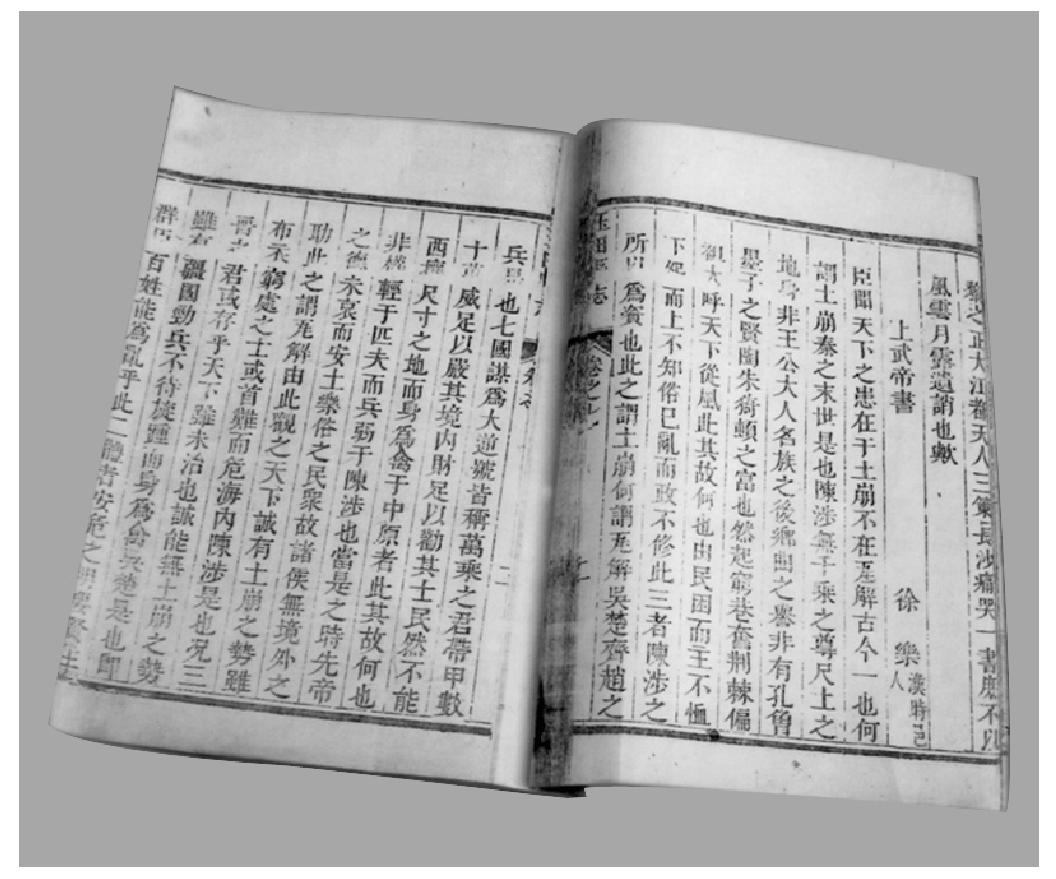 正大江都天人三策長沙痛哭一書庶不only
風雲月露遺誚也歟
上武帝書 徐樂 漢時邑人
臣聞天下之患在于土崩不在瓦解古今一也何
謂土崩秦之末世是也陳涉無千乘之尊尺土之
地身非王公大人名族之後鄉曲之譽非有孔曾
墨子之賢陶朱猗頓之富也然起窮巷奮荆棘偏
袒大呼天下從風此其故何也由民困而主不恤
下怨而上不知俗已亂而政不修此三者陳涉之
所以為資也此之謂土崩何謂瓦解吳楚齊趙之
玉田縣志 卷之 二
兵是也七國謀為大逆號皆稱萬乘之君帶甲數
十萬威足以嚴其境內財足以勸其士民然不能
西攘尺寸之地而身為禽于中原者此其故何也
非權輕于匹夫而兵弱于陳涉也當是之時先帝
之德未衰而安土樂俗之民衆故諸侯無境外之
助此之謂瓦解由此觀之天下誠有土崩之勢雖
布衣窮處之士或首難而危海內陳涉是也況三
晉之君或存乎天下雖未治也誠能無土崩之勢
雖有疆國勁兵不待旋踵而身為禽吳楚是也即
群臣百姓能為亂乎此二體者安危之明要